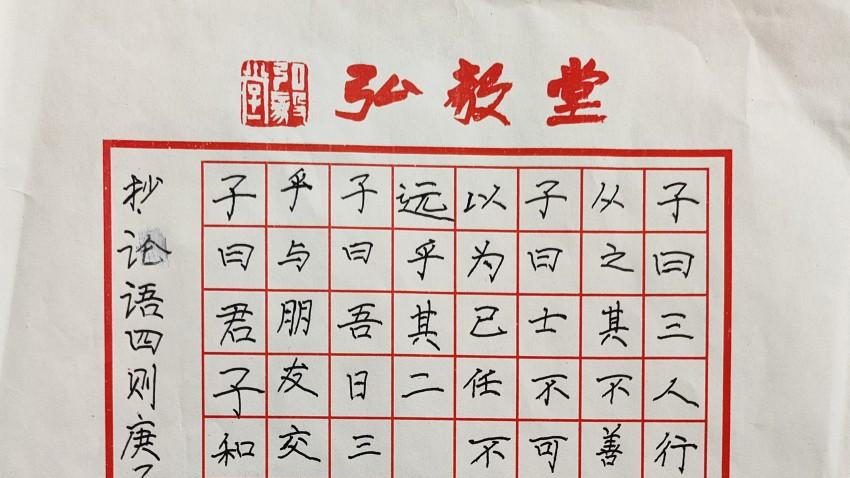 弘毅堂
弘毅堂
子曰三人行
从之其不善
子曰士不可
以为已任不
远乎其二
子曰吾日三
乎与朋友交
子曰君子和
抄论语四则庚